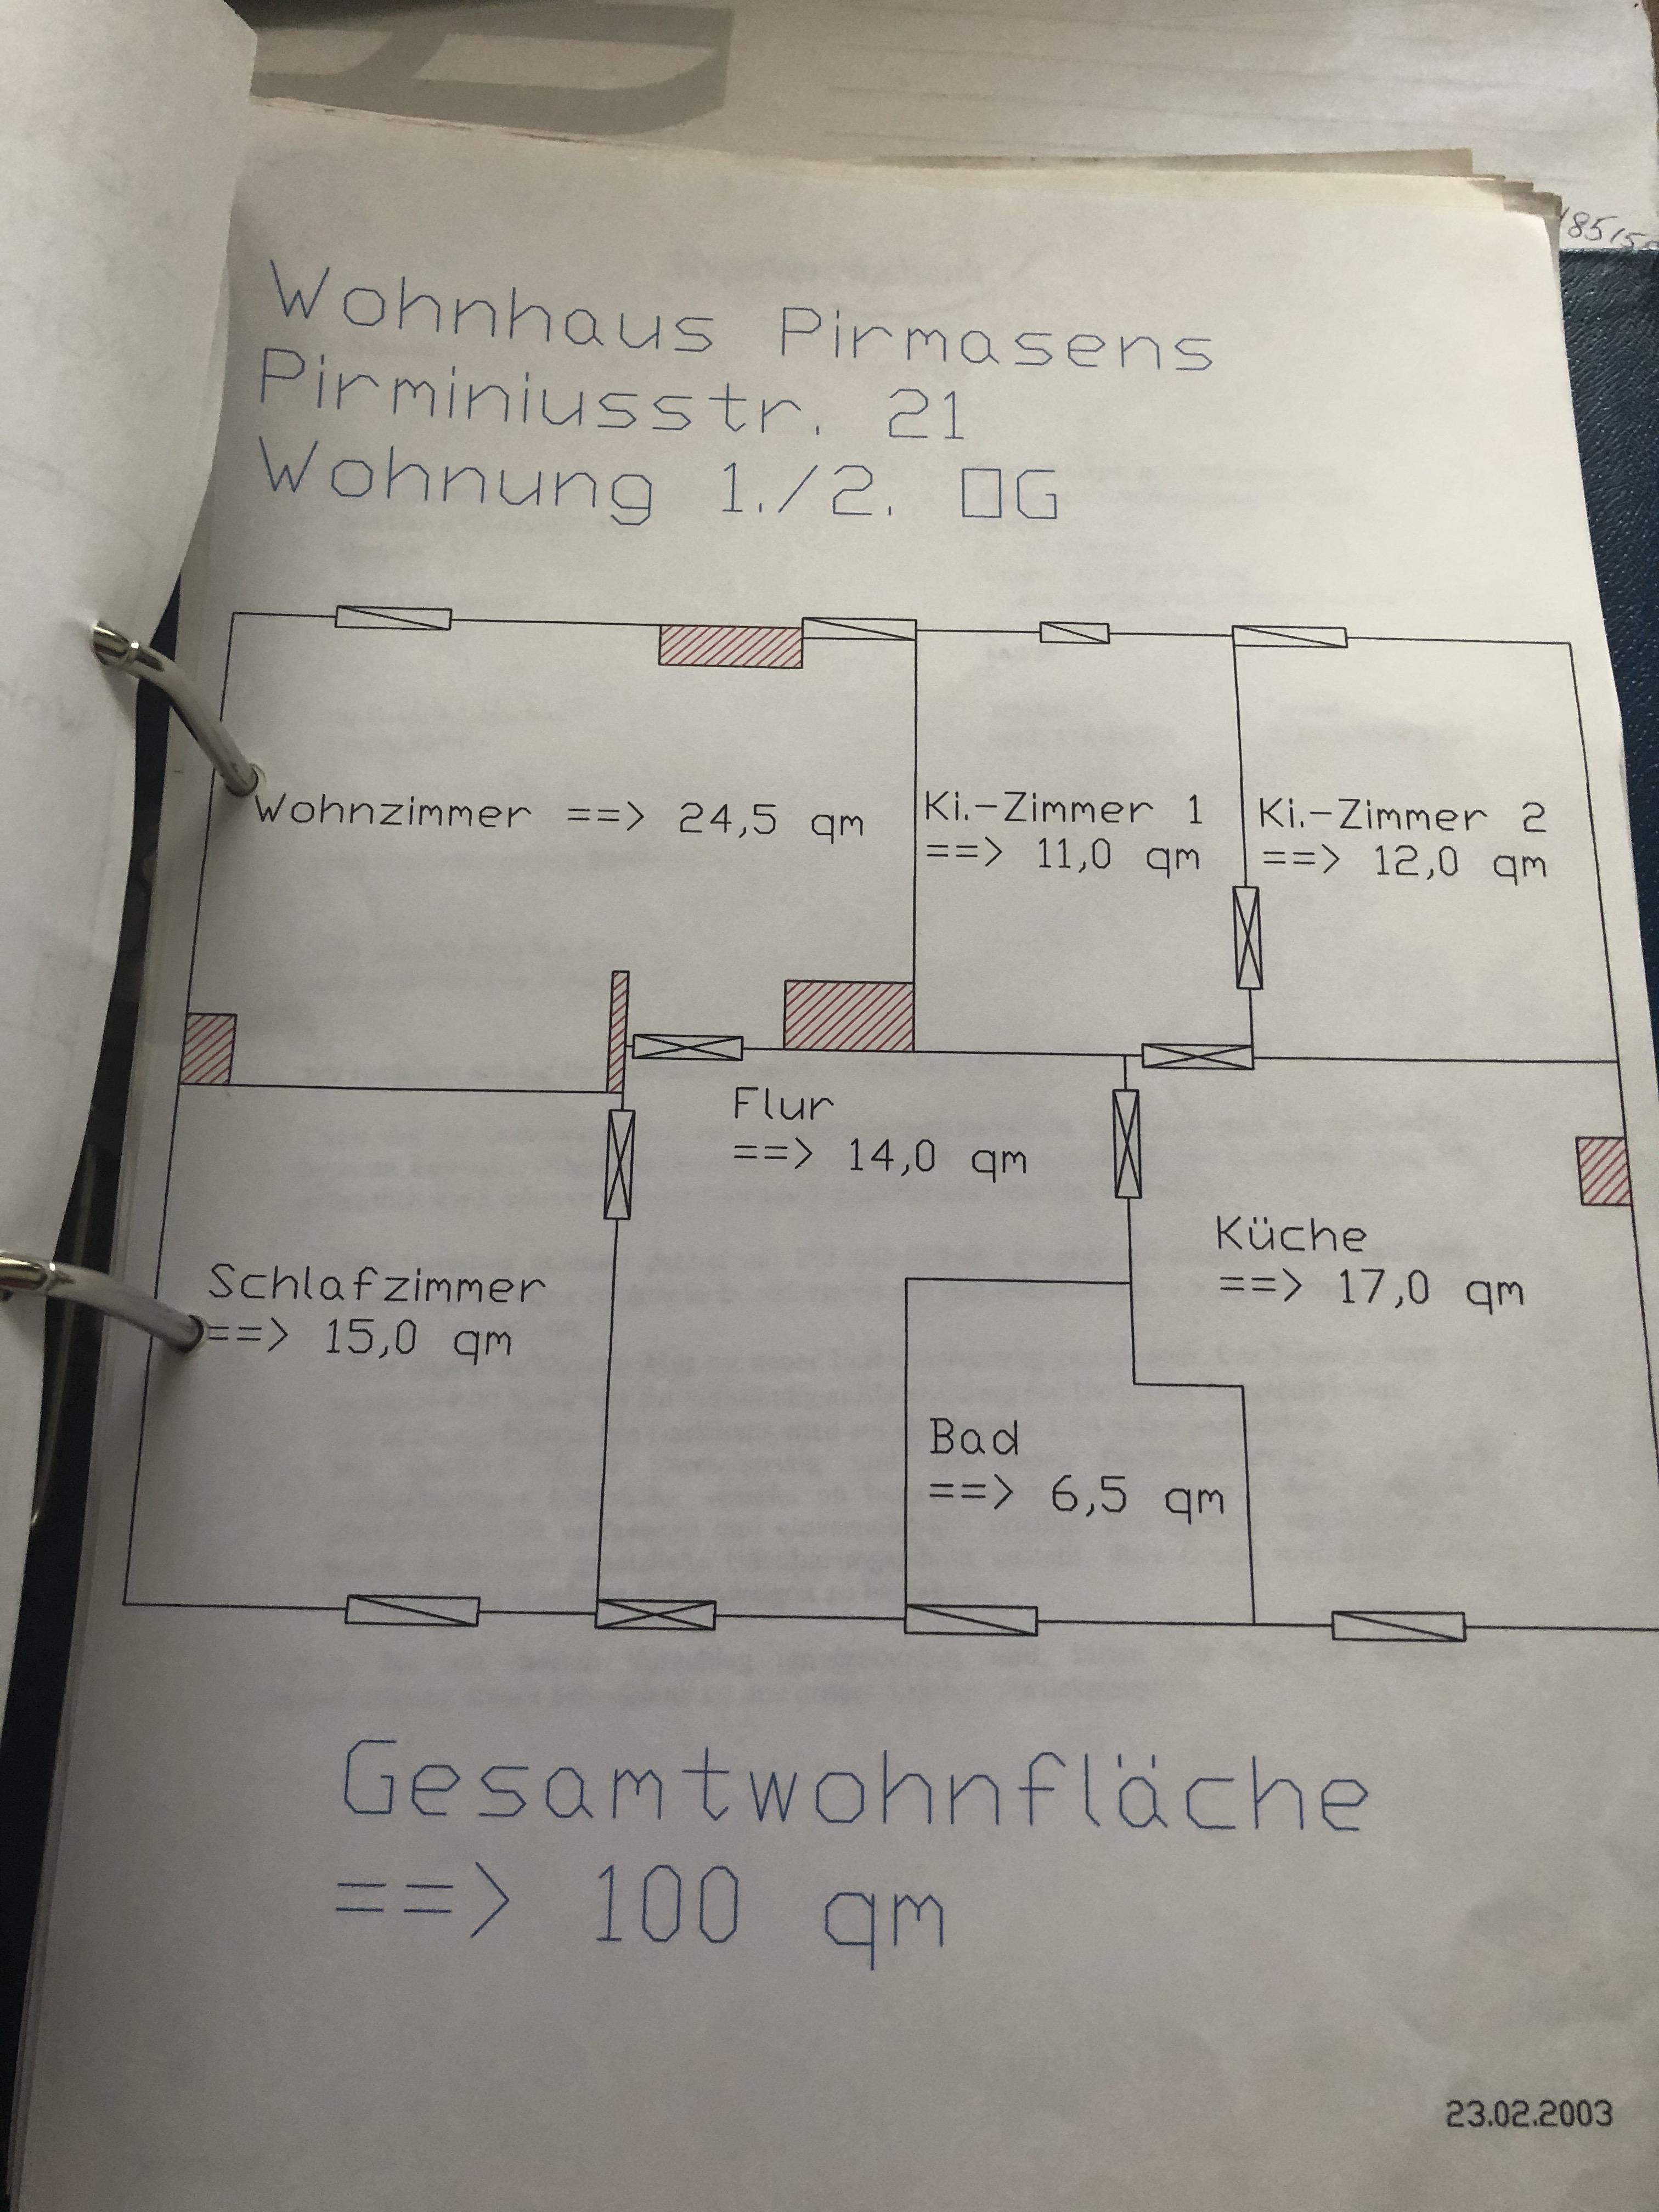 Wohnhaus Pirmasens
Pirminiusstr. 21
Wohnung 1./2. OG
Wohnzimmer ==> 24,5 qm
Ki.-Zimmer 1
==> 11,0 qm
Ki.-Zimmer 2
==> 12,0 qm
Flur
==> 14,0 qm
Küche
==> 17,0 qm
Schlafzimmer
==> 15,0 qm
Bad
==> 6,5 qm
Gesamtwohnfläche
==> 100 qm
23.02.2003